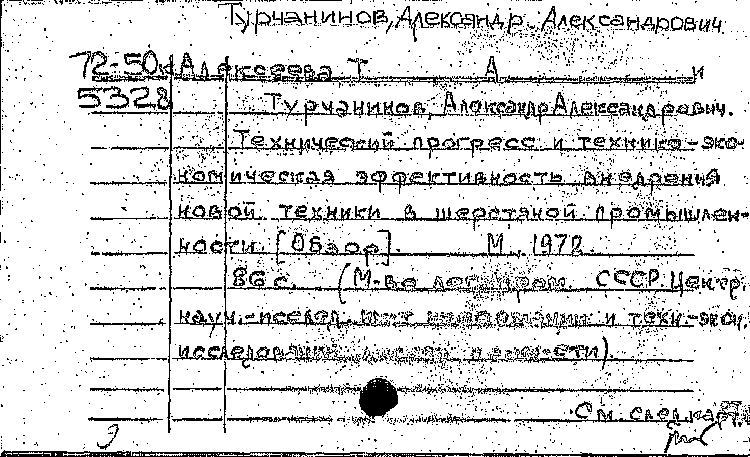 Турчанинов, Александр Александрович.
72-50к Алексеева Т А и
5328 Турчанинов, Александр Александрович.
Технический прогресс и технико-эко-
номическая эффективность внедрения
новой техники в шерстяной промышлен-
ности. [Обзор]. М., 1972.
86 с. (М-во легк. пром. СССР. Центр.
науч.-исслед. ин-т информации и техн.-экон.
исследований легкой пром-сти)
См. след. карт.